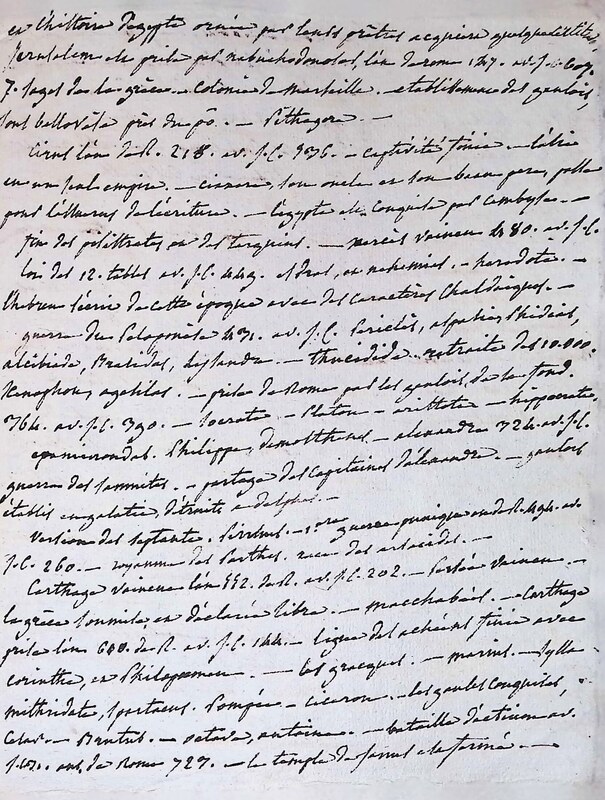 et l'histoire d'egypte ornée par leurs prêtres acquiere quelque
Jerusalem est prise par nabuchodonosor, l'an de rome 147. av. J.C. 607.
7. sages de la grèce. – colonie de marseille. – etablissement des gaulois,
sous bellovèse près du pô. – Pithagore. –
Cirus l'an de R. 218. av. J.C. 536. – captivité finie. – l'asie
en un seul empire. – ciaxare, son oncle et son beau pere,
pour l'assuerus de l'écriture. – l'egypte est conquise par cambyse. –
fin des pisistrates et des tarquins. – xercès vaincu 480. av. J.C.
loi des 12. tables av. J.C. 449. esdras, et nehemias. – herodote. –
l'hebreu s'écrit de cette époque avec des caractères chaldaiques. –
guerre du Peloponèse 431. av. J.C. Periclès, aspasie, Phidias,
alcibiade, Brasidas, lysandre. – thucidide. retraite des 10.000.
Xenophon, agesilas. – prise de Rome par les gaulois de sa fond.
364. av. J.C. 390. – socrate. – Platon – aristote – hippocrate.
epaminondas. Philippe, demosthene. – alexandre 324. av. J.C.
guerre des samnites. – partage des capitaines d'alexandre. – gaulois
établis en galatie, détruits a delphes. –
Version des septante. Pirrhus. – 1ere guerre punique an de R. 494. av.
J.C. 260. – royaume des Parthes. race des arsacides. –
Carthage vaincue l'an 552. de R. av. J.C. 202. – Persée vaincu. –
la grèce soumise, et déclarée libre. – macchabées. – Carthage
prise l'an 600. de R. av. J.C. 144. – ligue des achéens finie avec
corinthe, et Philopœmen. – les gracques. – marius. – sylla
mithridate, spartacus. Pompée. – ciceron. – les gaules conquises,
César. – Brutus. – octave, antoine. – bataille d'actium av.
J.C. an. de Rome 727. – le temple de Janus est fermé. –